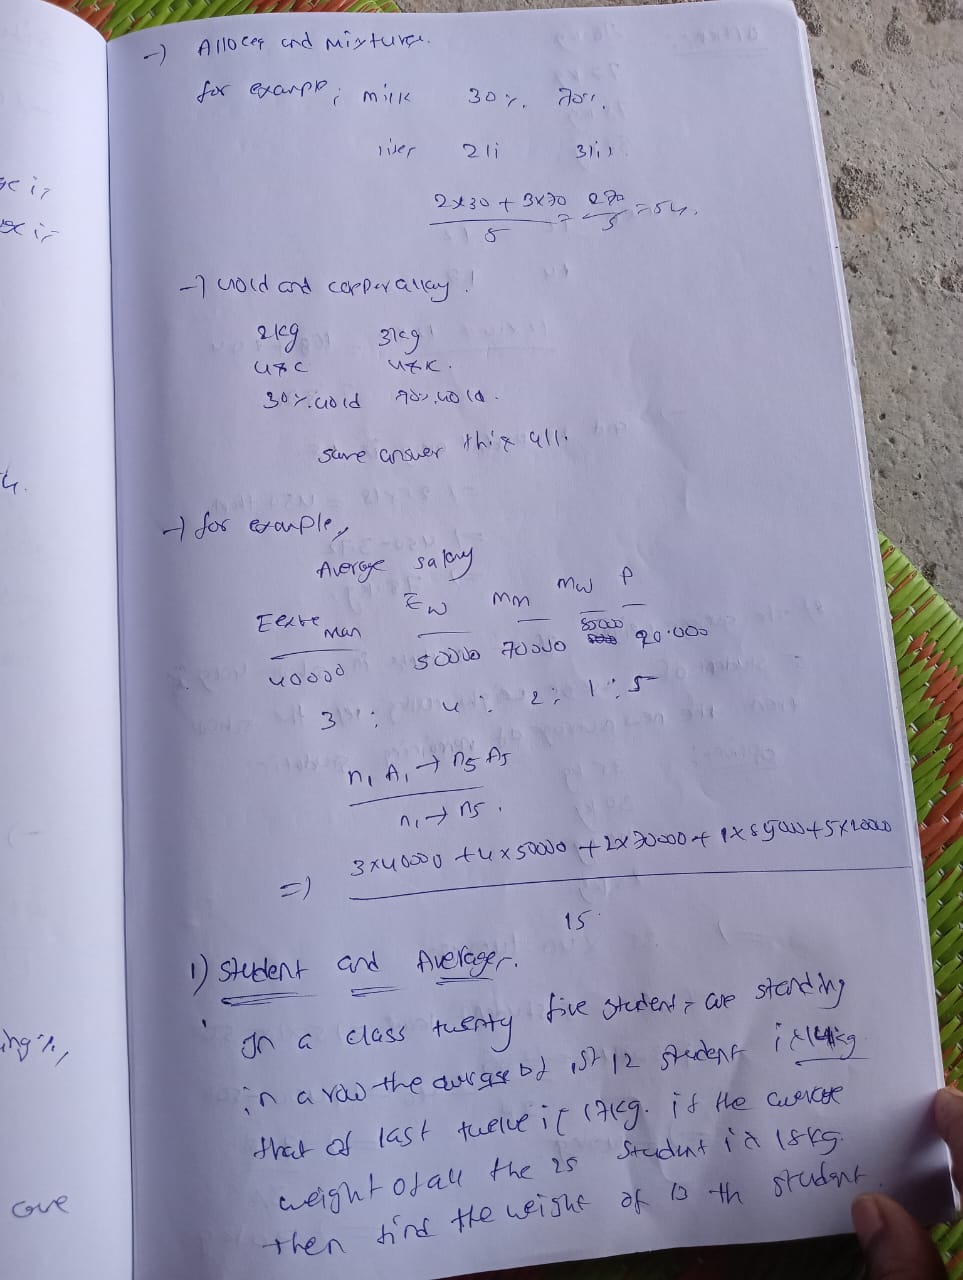 -) Alloceg and Mixture.
for example; milk 30%. 70%.
liser 2li 3li
2x30 + 3x70 270 = 54.
5 5
-) Gold and copper allay!
2kg 3kg
G&C G&C.
30%.Gold 90%.Gold.
same answer this all.
-) for example,
Average salary
Man EW MM MW P
40000 50000 70000 20.000
3 : 4 : 2 : 1 : 5
n₁ A₁ → n5 A5
n₁ → n5.
=) 3x40000 + 4x50000 + 2x70000 + 1x + 5x20000
15
1) Student and Averager.
In a class twenty five students are standing
in a row the average of 1st 12 student is 14kg
that of last twelve is 17kg. if the average
weight of all the 25 student is 18kg.
then find the weight of 13 th student.
ove